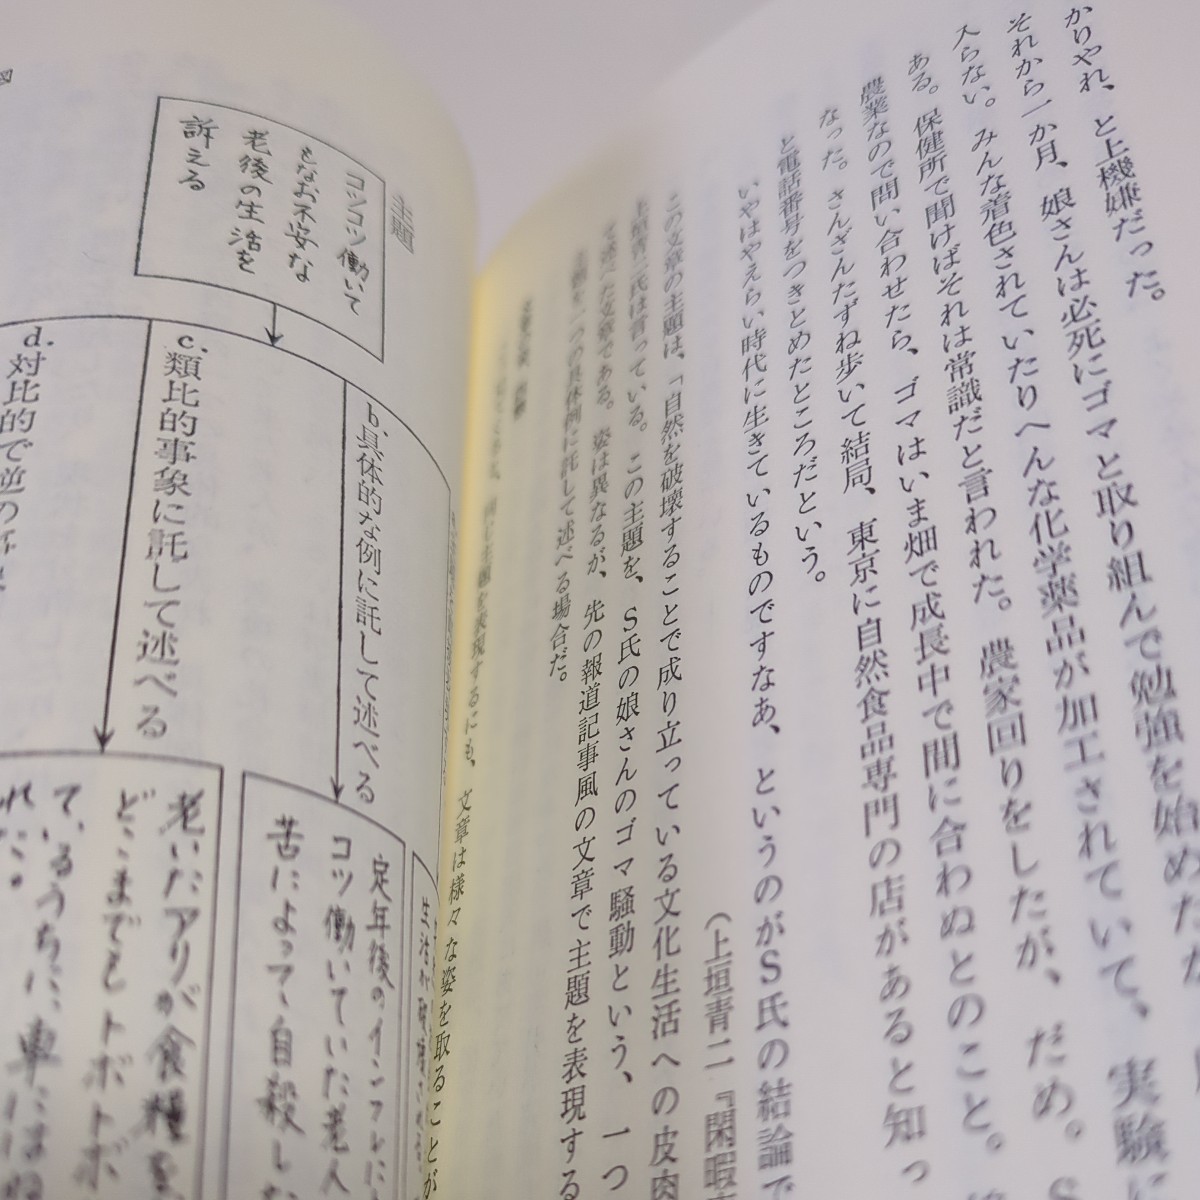 かりやれ、と上機嫌だった。
それから一か月、娘さんは必死にゴマと取り組んで勉強を始めたが、
入らない。みんな着色されていたりへんな化学薬品が加工されていて、実験に
ある。保健所で聞けばそれは常識だと言われた。農家回りをしたが、だめ。S
農業なので問い合わせたら、ゴマはいま畑で成長中で間に合わぬとのこと。
なった。さんざんたずね歩いて結局、東京に自然食品専門の店があると知っ
と電話番号をつきとめたところだという。
いやはやえらい時代に生きているものですなあ、というのがS氏の結論で
（上垣青二『閑暇
この文章の主題は、「自然を破壊することで成り立っている文化生活への皮肉
上垣青二氏は言っている。この主題を、S氏の娘さんのゴマ騒動という、一つ
て述べた文章である。姿は異なるが、先の報道記事風の文章で主題を表現する
主題を一つの具体例に託して述べる場合だ。
同じ主題を表現するにも、文章は様々な姿を取ることが
主題
コツコツ働いて
もなお不安な
老後の生活を
訴える
b.具体的な例に託して述べる
c.類比的事象に託して述べる
d.対比的で逆の
定年後のインフレに
コツ働いていた老人
苦によって、自殺し
老いたアリが食糧を
どこまでもトボトボ
ているうちに、車に
図